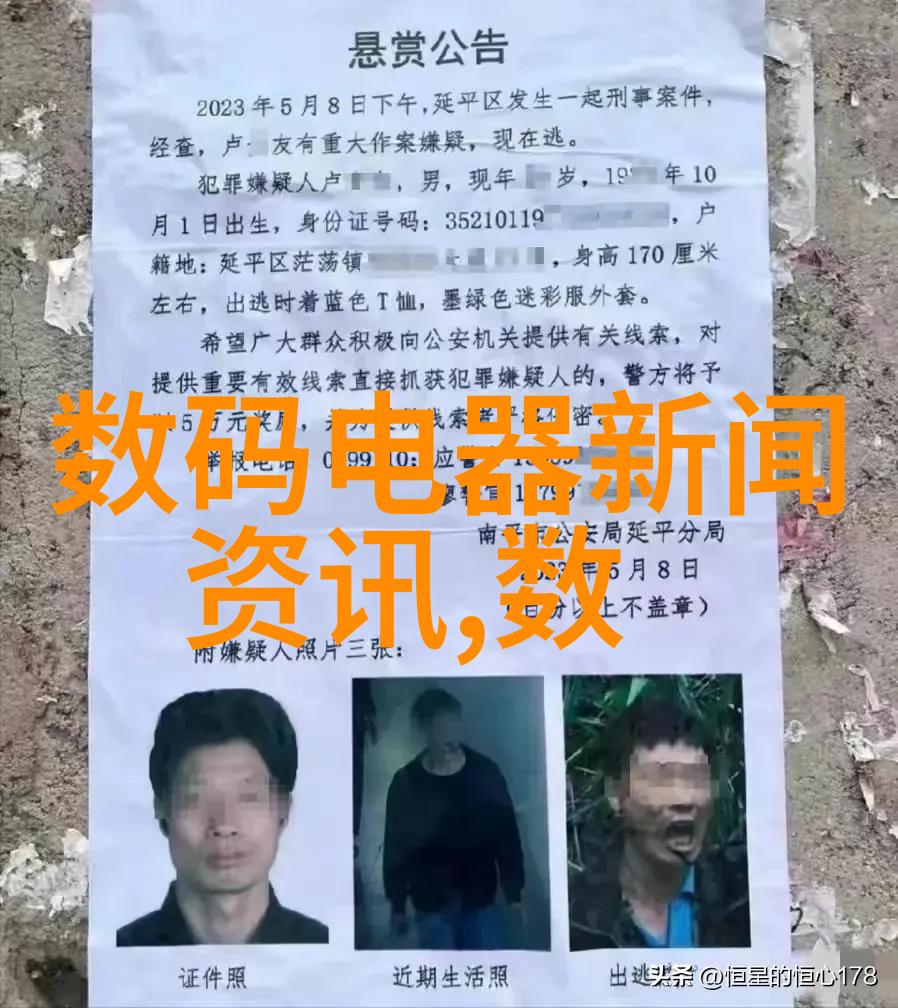 悬赏公告
2023年5月8日下午，延平区发生一起刑事案件，
经查，卢 友有重大作案嫌疑，现在逃。
犯罪嫌疑人卢 ，男，现年 岁，19 年10
月1日出生，身份证号码：35210119 ，户
籍地：延平区茫荡镇 ，身高170厘米
左右，出逃时着蓝色T恤，墨绿色迷彩服外套。
希望广大群众积极向公安机关提供有关线索，对
提供重要有效线索直接抓获犯罪嫌疑人的，警方将予
5万元奖励，
举报电话
数码电器新闻
南平市公安局延平分局
资讯,数
2023年5月8日
（ 份以上不盖章）
附嫌疑人照片三张：
证件照
近期生活照
出逃
头条 @恒星的恒心178